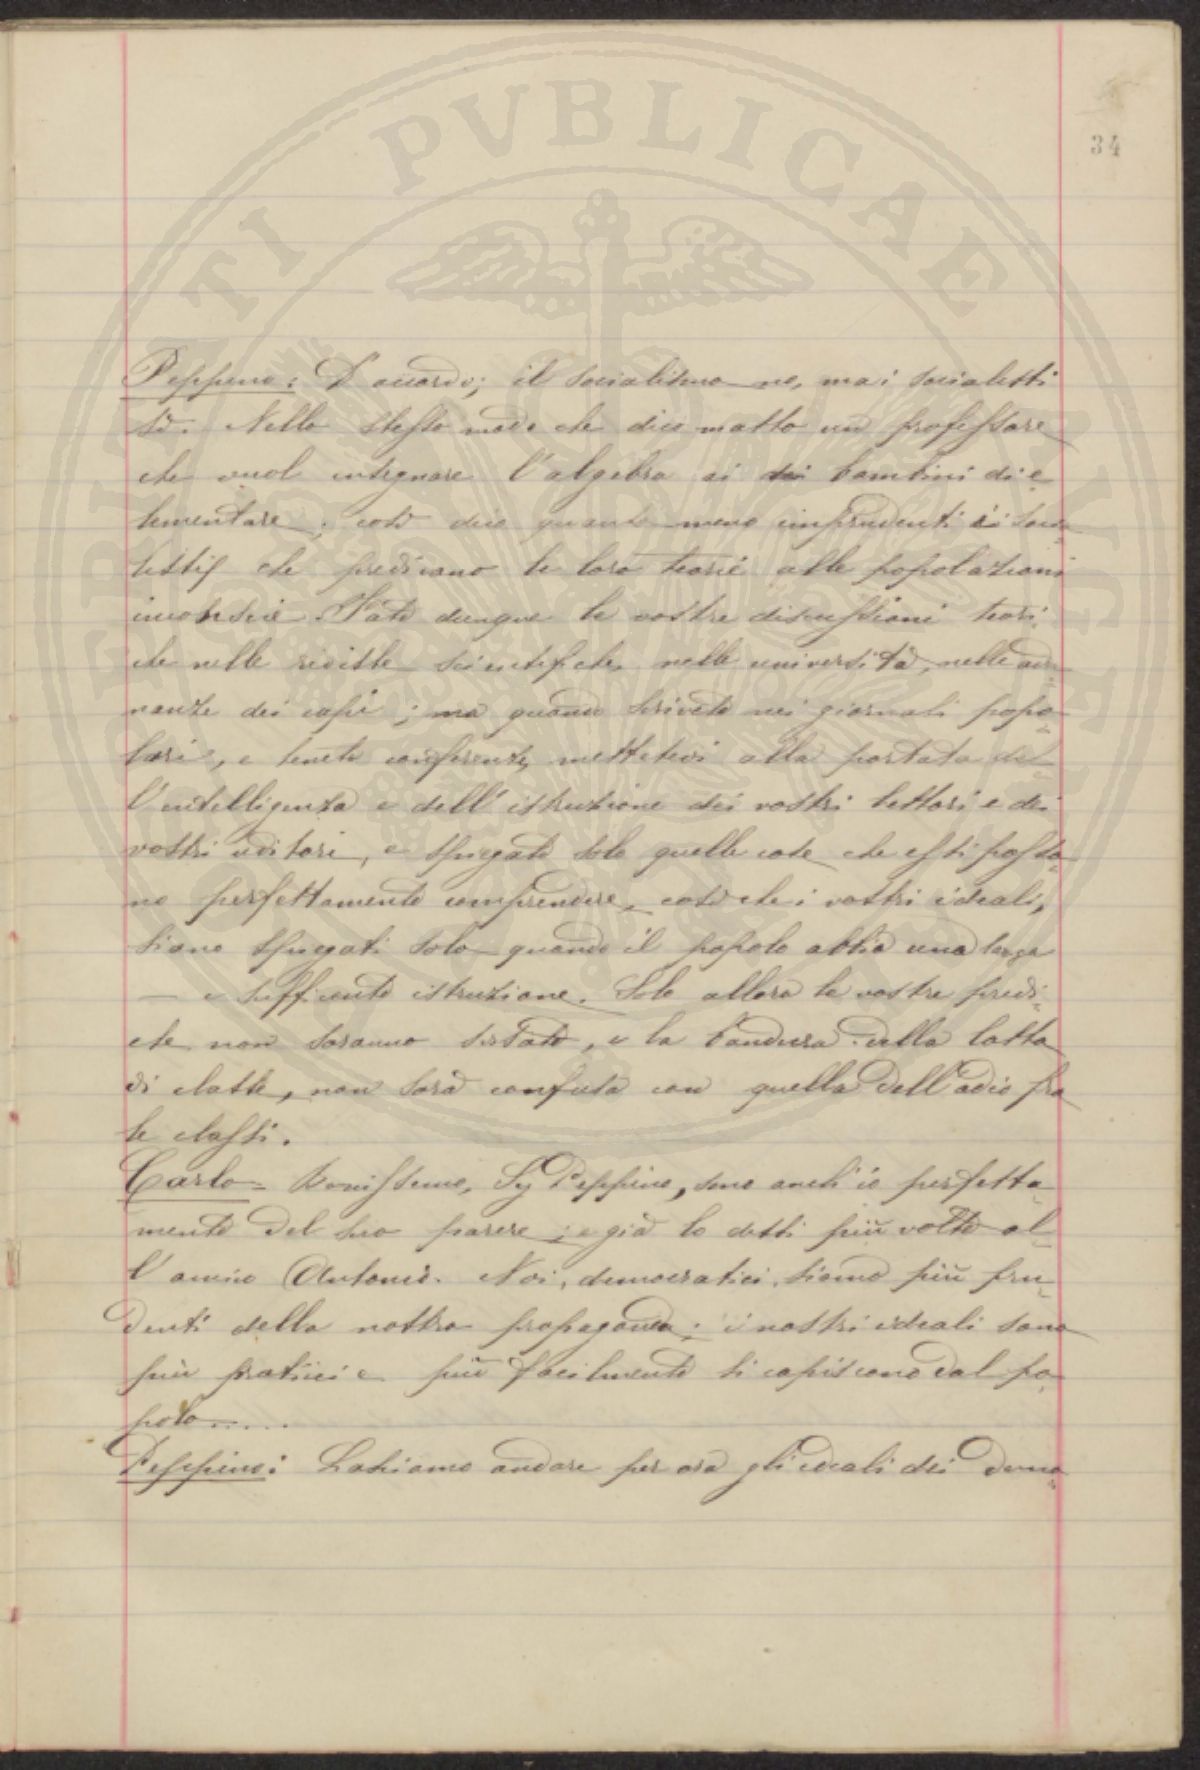 PERITI PVBLICAE
34
Peppino: D'accordo; il socialismo no, ma i socialisti
sì. Nello stesso modo che dico matto un professore
che vuol insegnare l'algebra ai dei bambini di e-
lementare, così dico quanto meno imprudenti i socia-
listi che predicano le loro teorie alle popolazioni
inconscie. Fate dunque le vostre discussioni teori-
che nelle riviste scientifiche, nelle università, nelle adu-
nanze dei capi; ma quando scrivete nei giornali popo-
lari, e tenete conferenze, mettetevi alla portata del-
l'intelligenza e dell'istruzione dei vostri lettori e dei
vostri uditori, e spiegate solo quelle cose che essi possa-
no perfettamente comprendere, così che i vostri ideali,
siano spiegati solo quando il popolo abbia una larga
— e sufficente istruzione. Solo allora le vostre predi-
che non saranno sfatate, e la bandiera della lotta
di classe, non sarà confusa con quella dell'odio fra
le classi.
Carlo = Benissimo, Sig Peppino, sono anch'io perfetta-
mente del suo parere; e già lo dissi più volte al-
l'amico Antonio. Noi, democratici, siamo più pru-
denti della nostra propaganda; i nostri ideali sono
più pratici e più facilmente si capiscono dal po-
polo.....
Peppino: Lasciamo andare per ora gli ideali dei demo-